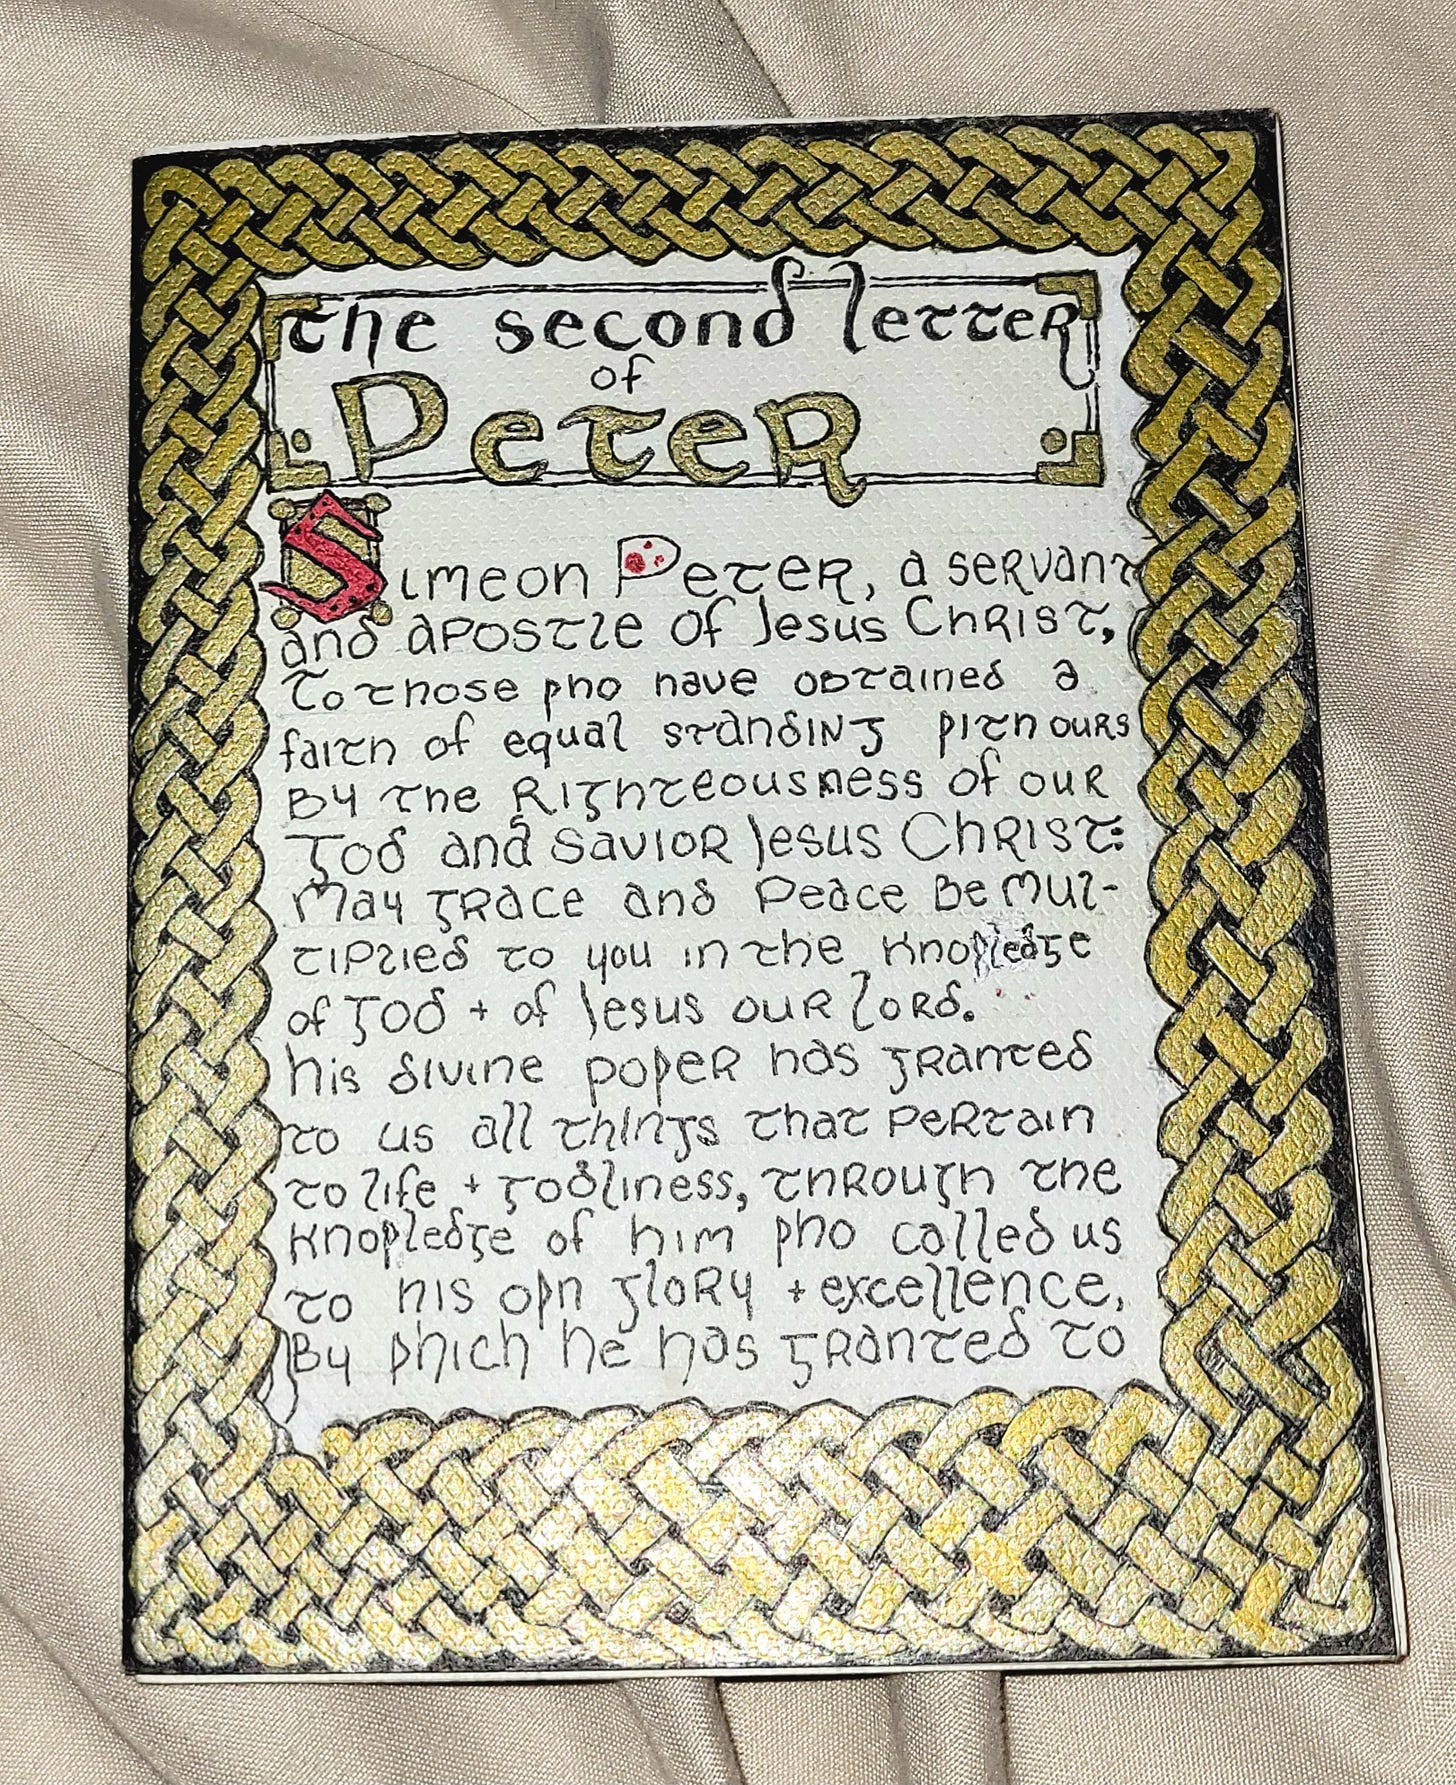 the second letter
of
Peter
Simeon Peter, a servant
and apostle of Jesus Christ,
To those ƿho have obtained a
faith of equal standing ƿith ours
By the Righteousness of our
God and Savior Jesus Christ:
May grace and Peace Be Mul-
tiplied to you in the knoƿledge
of God + of Jesus our Lord.
his divine poƿer has granted
to us all things that pertain
to life + godliness, through the
knoƿledge of him ƿho called us
to his oƿn glory + excellence,
By ƿhich he has granted to